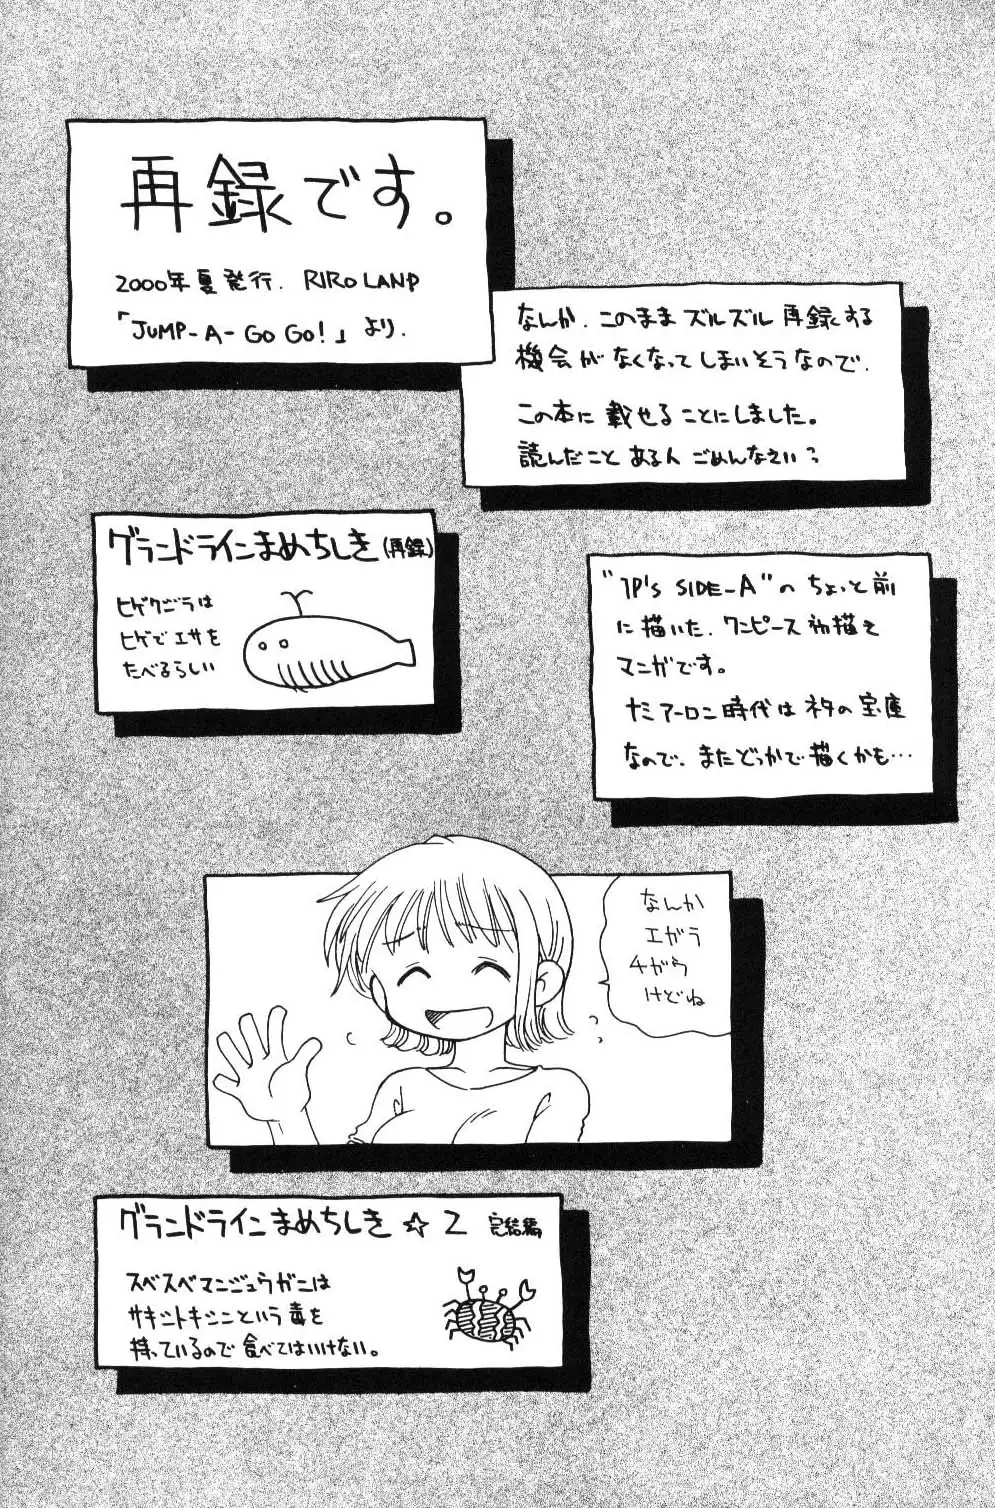 再録です。
2000年夏発行. RIRO LAND
「JUMP-A-GO GO!」より.
なんか、このままズルズル再録する
機会がなくなってしまいそうなので、
この本に載せることにしました。
読んだことある人ごめんなさい
グランドラインまめちしき(再録)
ヒゲクジラは
ヒゲでエサを
たべるらしい
"1P's SIDE-A"のちょっと前
に描いた、ワンピース初描き
マンガです。
ナミアーロン時代はネタの宝庫
なので、またどっかで描くかも…
なんか
エガラ
チガウ
けどね
グランドラインまめちしき☆2 完結編
スベスベマンジュウガニは
サキシトキシンという毒を
持っているので食べてはいけない。